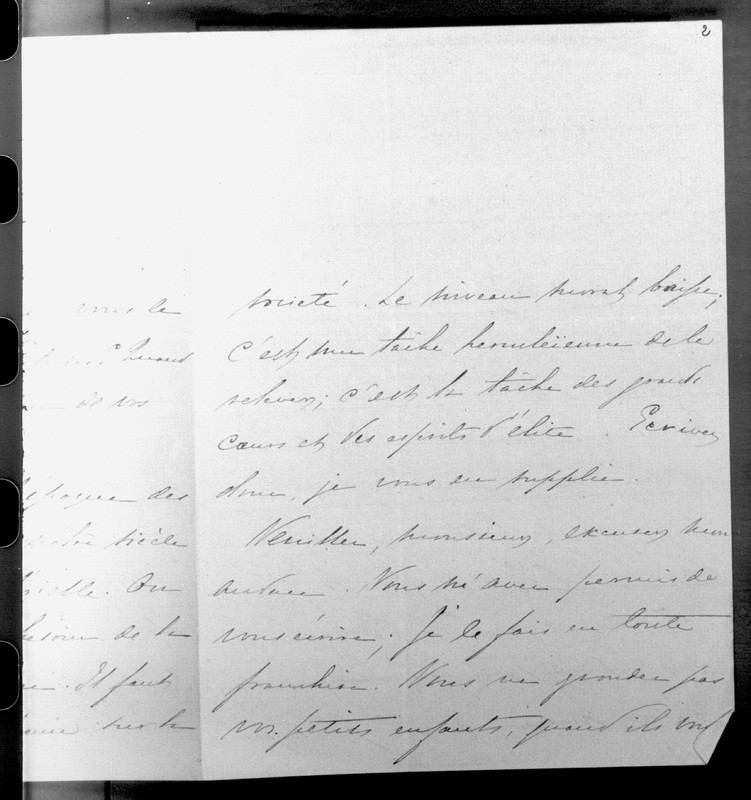 2
vous le
Quand
de vos
époque des
siècle
On
besoin de la
Il faut
sur la
société. Le niveau moral baisse;
c'est une tâche herculéenne de le
relever; c'est la tâche des grands
cœurs et des esprits d'élite. Ecrivez
donc, je vous en supplie.
Veuillez, monsieur, excuser mon
audace. Vous m'avez permis de
vous écrire; je le fais en toute
franchise. Vous ne grondez pas
vos petits enfants, quand ils vous